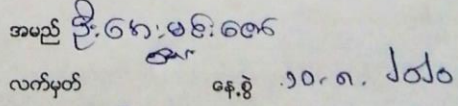 အမည် ဦးဝေးမင်းဇော်
လက်မှတ် နေ့စွဲ ၁၀.၈.၂၀၂၀